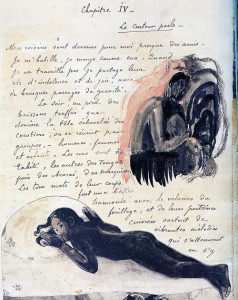 Chapitre IV -
Le conteur parle -
Mes voisins sont devenus pour moi presque des amis.
Je m'habille, je mange comme eux. Quand
je ne travaille pas je partage leur
vie d'indolence et de joie, avec
de brusques passages de gravité.
Le soir, au pied des
buissons touffus que
domine la tête échevelée des
cocotiers, on se réunit par
groupes, - hommes, femmes
et enfants. Les uns sont de
Tahiti, les autres des Tongas,
puis des Arorai, des Marquises.
Les tons mats de leur corps
font une belle
harmonie avec le velours du
feuillage, et de leurs poitrines
cuivrées sortent de
vibrantes mélodies
qui s'atténuent
en s'y